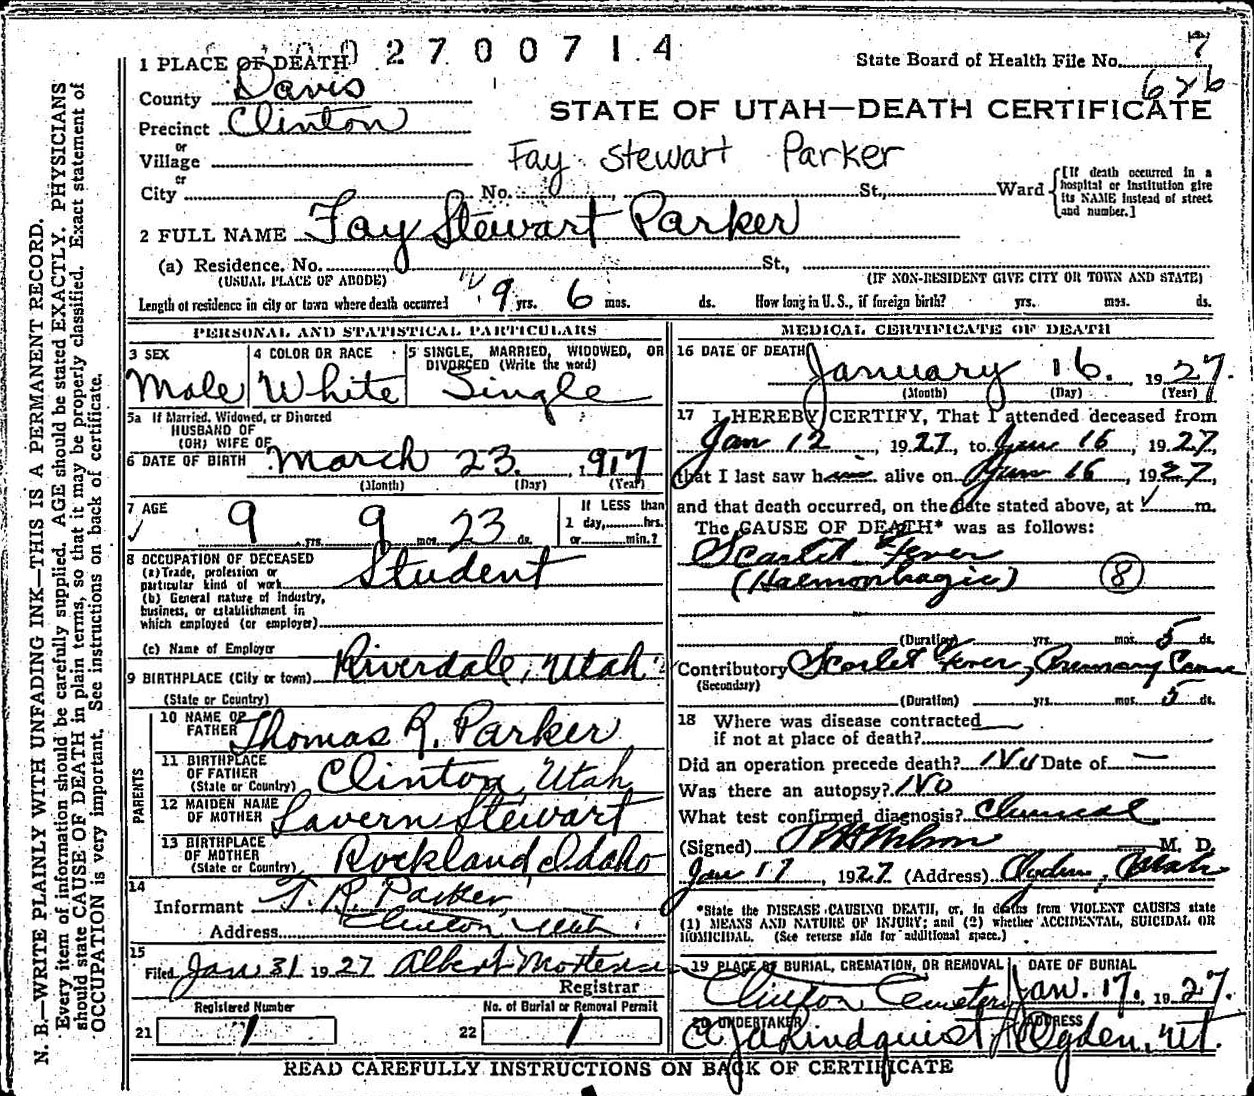 002700714
1 PLACE OF DEATH
State Board of Health File No. 7
626
County Davis
STATE OF UTAH—DEATH CERTIFICATE
Precinct Clinton
or
Village
Fay Stewart Parker
or
City No. St., Ward
[If death occurred in a hospital or institution give its NAME instead of street and number.]
2 FULL NAME Fay Stewart Parker
(a) Residence, No. St.,
(USUAL PLACE OF ABODE) (IF NON-RESIDENT GIVE CITY OR TOWN AND STATE)
Length of residence in city or town where death occurred 9 yrs. 6 mos. ds. How long in U. S., if foreign birth? yrs. mos. ds.
PERSONAL AND STATISTICAL PARTICULARS
3 SEX Male
4 COLOR OR RACE White
5 SINGLE, MARRIED, WIDOWED, OR DIVORCED (Write the word) Single
5a If Married, Widowed, or Divorced
HUSBAND OF
(OR) WIFE OF
6 DATE OF BIRTH March 23. 1917
(Month) (Day) (Year)
7 AGE 9 yrs. 9 mos. 23 ds.
If LESS than
1 day, hrs.
or min.?
8 OCCUPATION OF DECEASED
(a) Trade, profession or
particular kind of work Student
(b) General nature of Industry,
business, or establishment in
which employed (or employer)
(c) Name of Employer
9 BIRTHPLACE (City or town) Riverdale, Utah
(State or Country)
PARENTS
10 NAME OF
FATHER Thomas R. Parker
11 BIRTHPLACE
OF FATHER
(State or Country) Clinton, Utah
12 MAIDEN NAME
OF MOTHER Lavern Stewart
13 BIRTHPLACE
OF MOTHER
(State or Country) Rockland, Idaho
14
Informant T. R. Parker
Address Clinton Utah
15
Filed Jan 31 1927 Albert Mortensen
Registrar
Registered Number
21 1
No. of Burial or Removal Permit
22 1
MEDICAL CERTIFICATE OF DEATH
16 DATE OF DEATH January 16. 1927.
(Month) (Day) (Year)
17 I HEREBY CERTIFY, That I attended deceased from
Jan 12, 1927, to Jan 16, 1927,
that I last saw him alive on Jan 16, 1927,
and that death occurred, on the date stated above, at m.
The CAUSE OF DEATH* was as follows:
Scarlet Fever
(Haemorrhagic) 8
(Duration) yrs. mos. 5 ds.
Contributory Scarlet Fever, Primary Cause
(Secondary)
(Duration) yrs. mos. 5 ds.
18 Where was disease contracted
if not at place of death?
Did an operation precede death? No Date of —
Was there an autopsy? No
What test confirmed diagnosis? Clinical
(Signed) M. D.
Jan 17, 1927 (Address) Ogden, Utah
*State the DISEASE CAUSING DEATH, or, in deaths from VIOLENT CAUSES state
(1) MEANS AND NATURE OF INJURY; and (2) whether ACCIDENTAL, SUICIDAL OR
HOMICIDAL. (See reverse side for additional space.)
19 PLACE OF BURIAL, CREMATION, OR REMOVAL Clinton Cemetery
DATE OF BURIAL Jan. 17. 1927.
20 UNDERTAKER Lindquist
ADDRESS Ogden, Ut.
READ CAREFULLY INSTRUCTIONS ON BACK OF CERTIFICATE
N. B.—WRITE PLAINLY WITH UNFADING INK—THIS IS A PERMANENT RECORD.
Every item of information should be carefully supplied. AGE should be stated EXACTLY. PHYSICIANS
should state CAUSE OF DEATH in plain terms, so that it may be properly classified. Exact statement of
OCCUPATION is very important. See instructions on back of certificate.